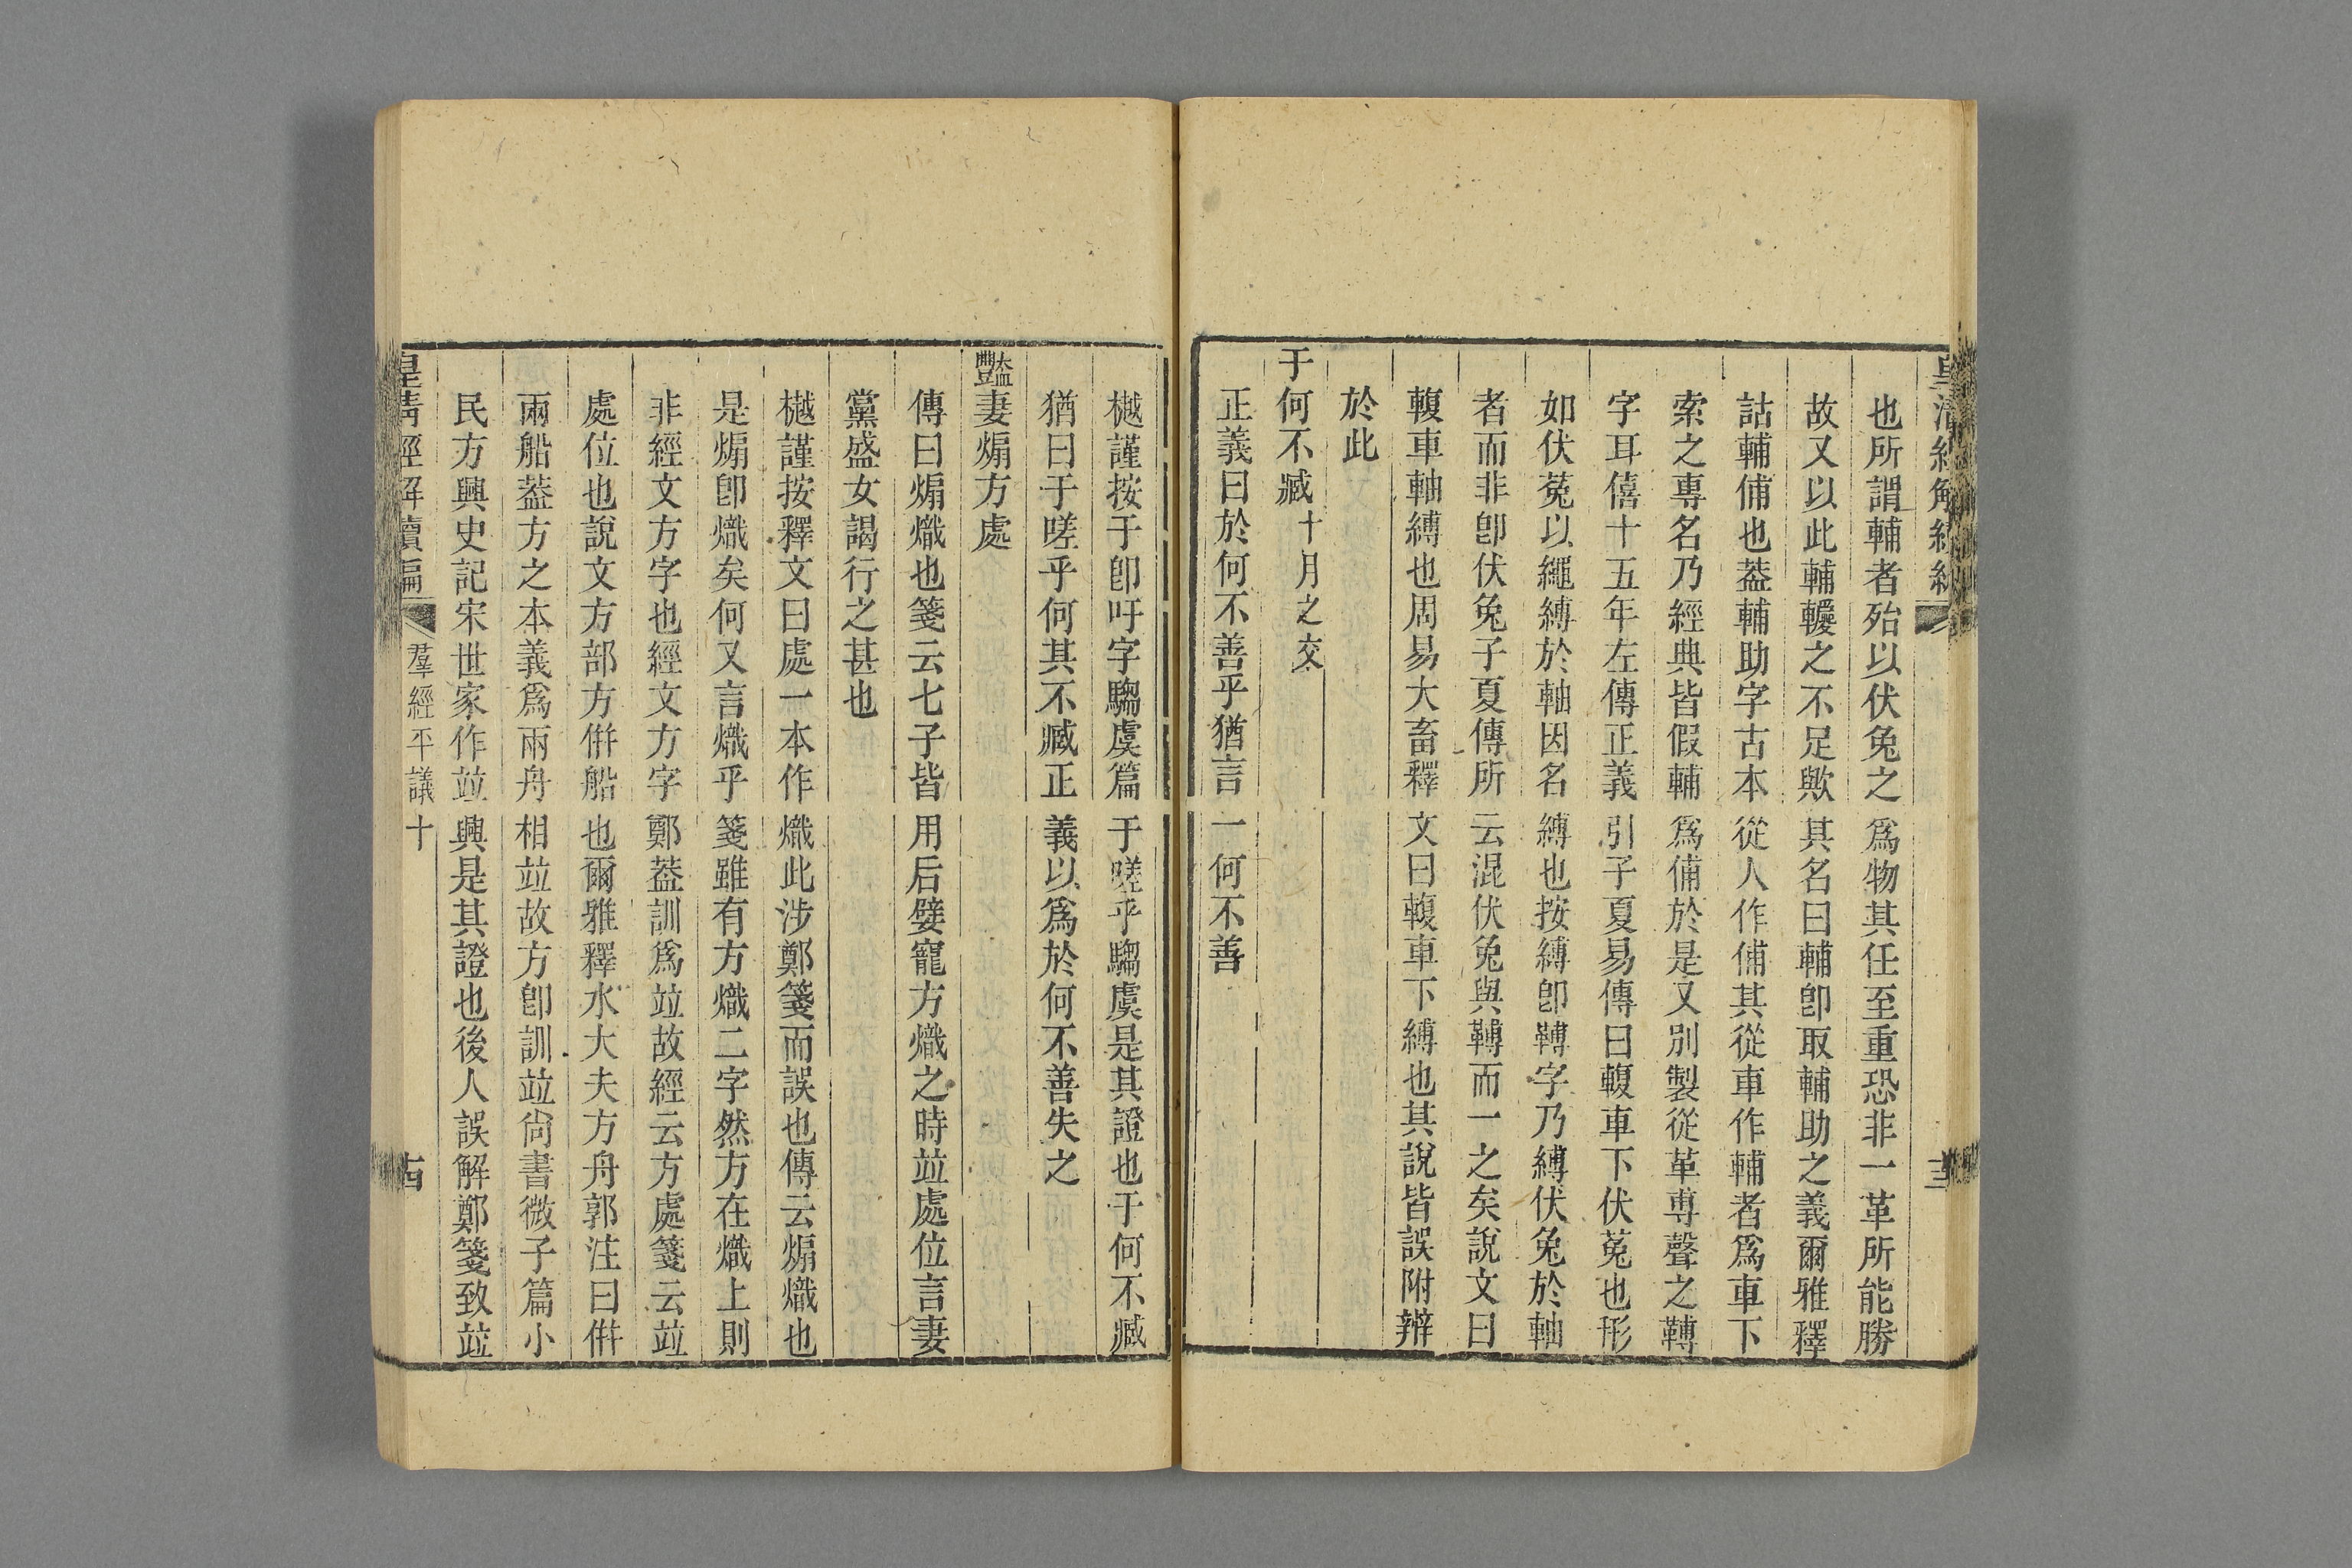 皇清經解續編
也所謂輔者殆以伏兔之爲物其任至重恐非一革所能勝
故又以此輔轐之不足歟其名曰輔卽取輔助之義爾雅釋
詁輔俌也葢輔助字古本從人作俌其從車作輔者爲車下
索之專名乃經典皆假輔爲俌於是又別製從革尃聲之䩛
字耳僖十五年左傳正義引子夏易傳曰輹車下伏菟也形
如伏菟以繩縛於軸因名縛也按縛卽䩛字乃縛伏兔於軸
者而非卽伏兔子夏傳所云混伏兔與䩛而一之矣說文曰
輹車軸縛也周易大畜釋文曰輹車下縛也其說皆誤附辯
於此
于何不臧十月之交
正義曰於何不善乎猶言一何不善
樾謹按于卽吁字騶虞篇于嗟乎騶虞是其證也于何不臧
猶曰于嗟乎何其不臧正義以爲於何不善失之
豔妻煽方處
傳曰煽熾也箋云七子皆用后嬖寵方熾之時竝處位言妻
黨盛女謁行之甚也
樾謹按釋文曰處一本作熾此涉鄭箋而誤也傳云煽熾也
是煽卽熾矣何又言熾乎箋雖有方熾二字然方在熾上則
非經文方字也經文方字鄭葢訓爲竝故經云方處箋云竝
處位也說文方部方倂船也爾雅釋水大夫方舟郭注曰倂
兩船葢方之本義爲兩舟相竝故方卽訓竝尙書微子篇小
民方興史記宋世家作竝興是其證也後人誤解鄭箋致竝
皇清經解續編
羣經平議十